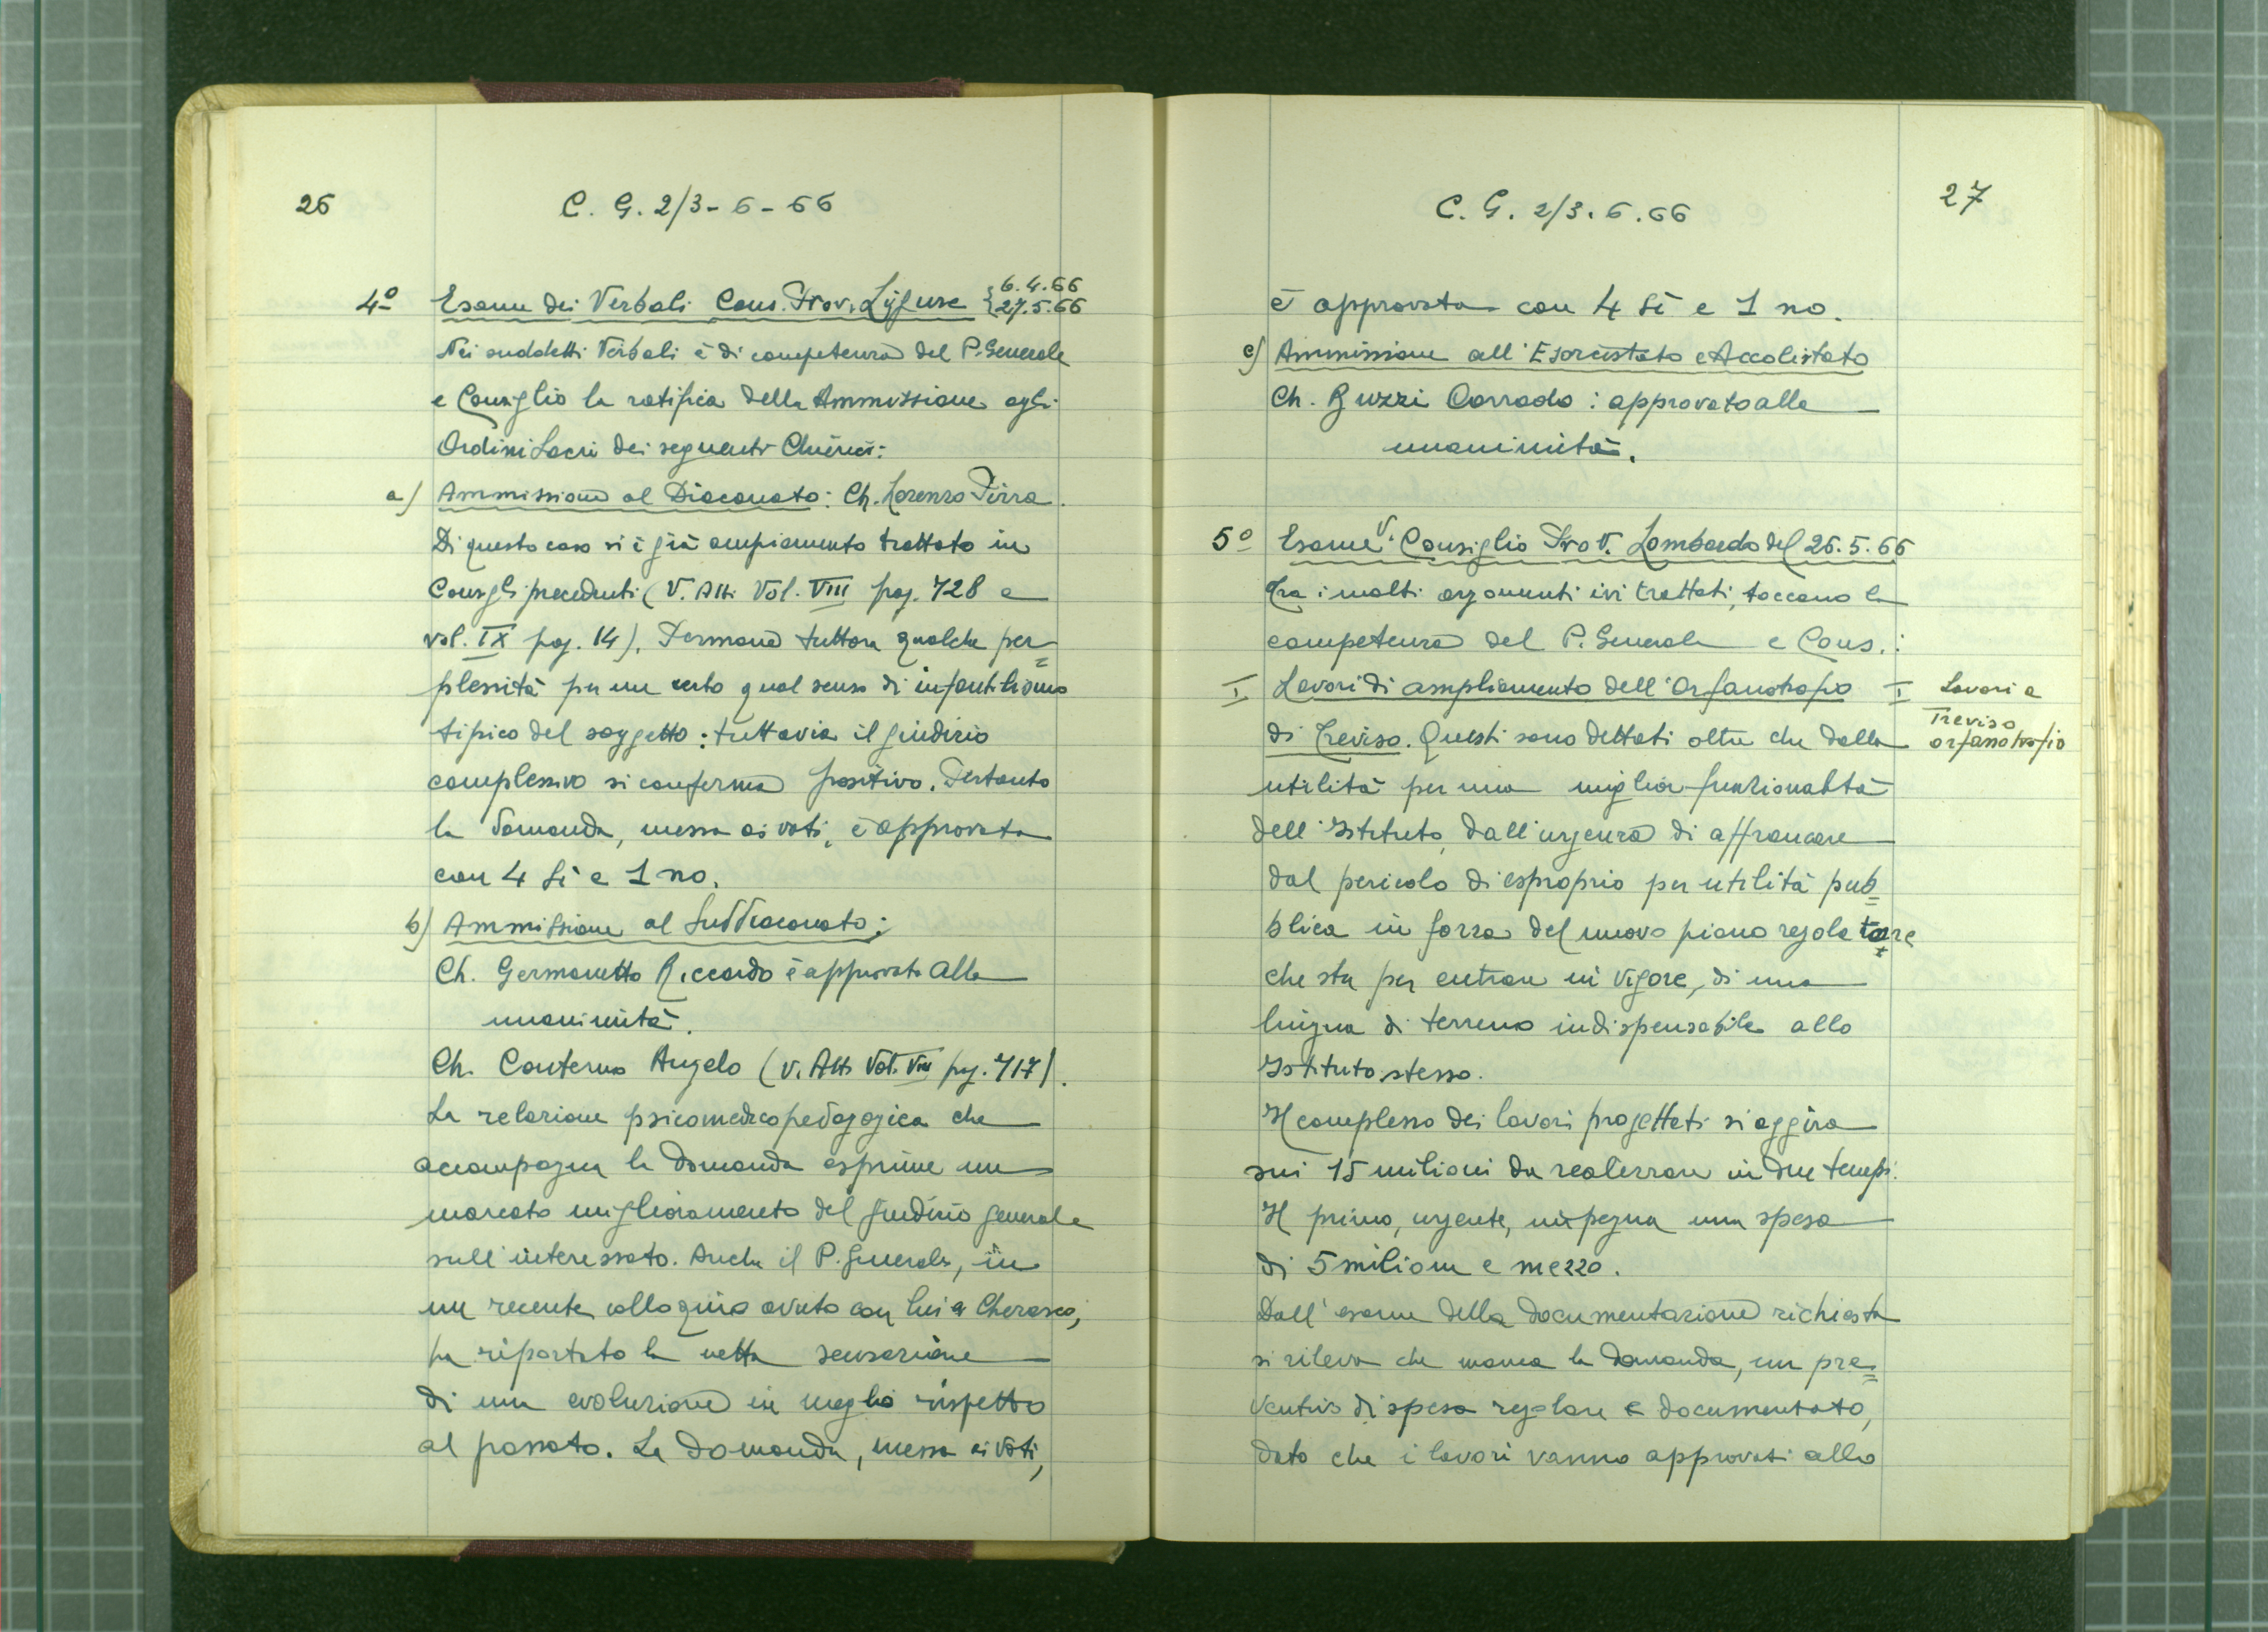 26
C. G. 2/3-6-66
4º Esame dei Verbali Cons. Prov. Ligure { 6.4.66
27.5.66
Nei suddetti Verbali è di competenza del P. Generale
e Consiglio la ratifica della Ammissione agli
Ordini Sacri dei seguenti Chierici:
a) Ammissione al Diaconato: Ch. Lorenzo Pirra.
Di questo caso si è già ampiamente trattato in
Consigli precedenti (V. Atti Vol. VIII pag. 728 e
vol. IX pag. 14). Permane tuttora qualche per=
plessità per un certo qual senso di infantilismo
tipico del soggetto: tuttavia il giudizio
complessivo si conferma positivo. Pertanto
la domanda, messa ai voti, è approvata
con 4 Sì e 1 no.
b) Ammissione al Suddiaconato:
Ch. Germanetto Riccardo è approvato alla
unanimità.
Ch. Conterno Angelo (V. Atti Vol. VIII pag. 717).
La relazione psicomedicopedagogica che
accompagna la domanda esprime un
marcato miglioramento del giudizio generale
sull'interessato. Anche il P. Generale, in
un recente colloquio avuto con lui a Cherasco,
ha riportato la netta sensazione
di una evoluzione in meglio rispetto
al passato. La domanda, messa ai voti,
27
C. G. 2/3.6.66
è approvata con 4 Sì e 1 no.
c) Ammissione all'Esorcistato e Accolitato
Ch. Buzzi Corrado: approvato alla
unanimità.
5º Esame V. Consiglio Prov. Lombardo del 26.5.66
Tra i molti argomenti ivi trattati, toccano la
competenza del P. Generale e Cons.:
I Lavori di ampliamento dell'Orfanotrofio
I Lavori a
Treviso
orfanotrofio
di Treviso. Questi sono dettati oltre che dalla
utilità per una miglior funzionalità
dell'Istituto, dall'urgenza di affrancare
dal pericolo di esproprio per utilità pub=
blica in forza del nuovo piano regolatore
che sta per entrare in vigore, di una
lingua di terreno indispensabile allo
Istituto stesso.
Il complesso dei lavori progettati si aggira
sui 15 milioni da realizzare in due tempi.
Il primo, urgente, impegna una spesa
di 5 milioni e mezzo.
Dall'esame della documentazione richiesta
si rileva che manca la domanda, un pre=
ventivo di spesa regolare e documentato,
dato che i lavori vanno approvati allo